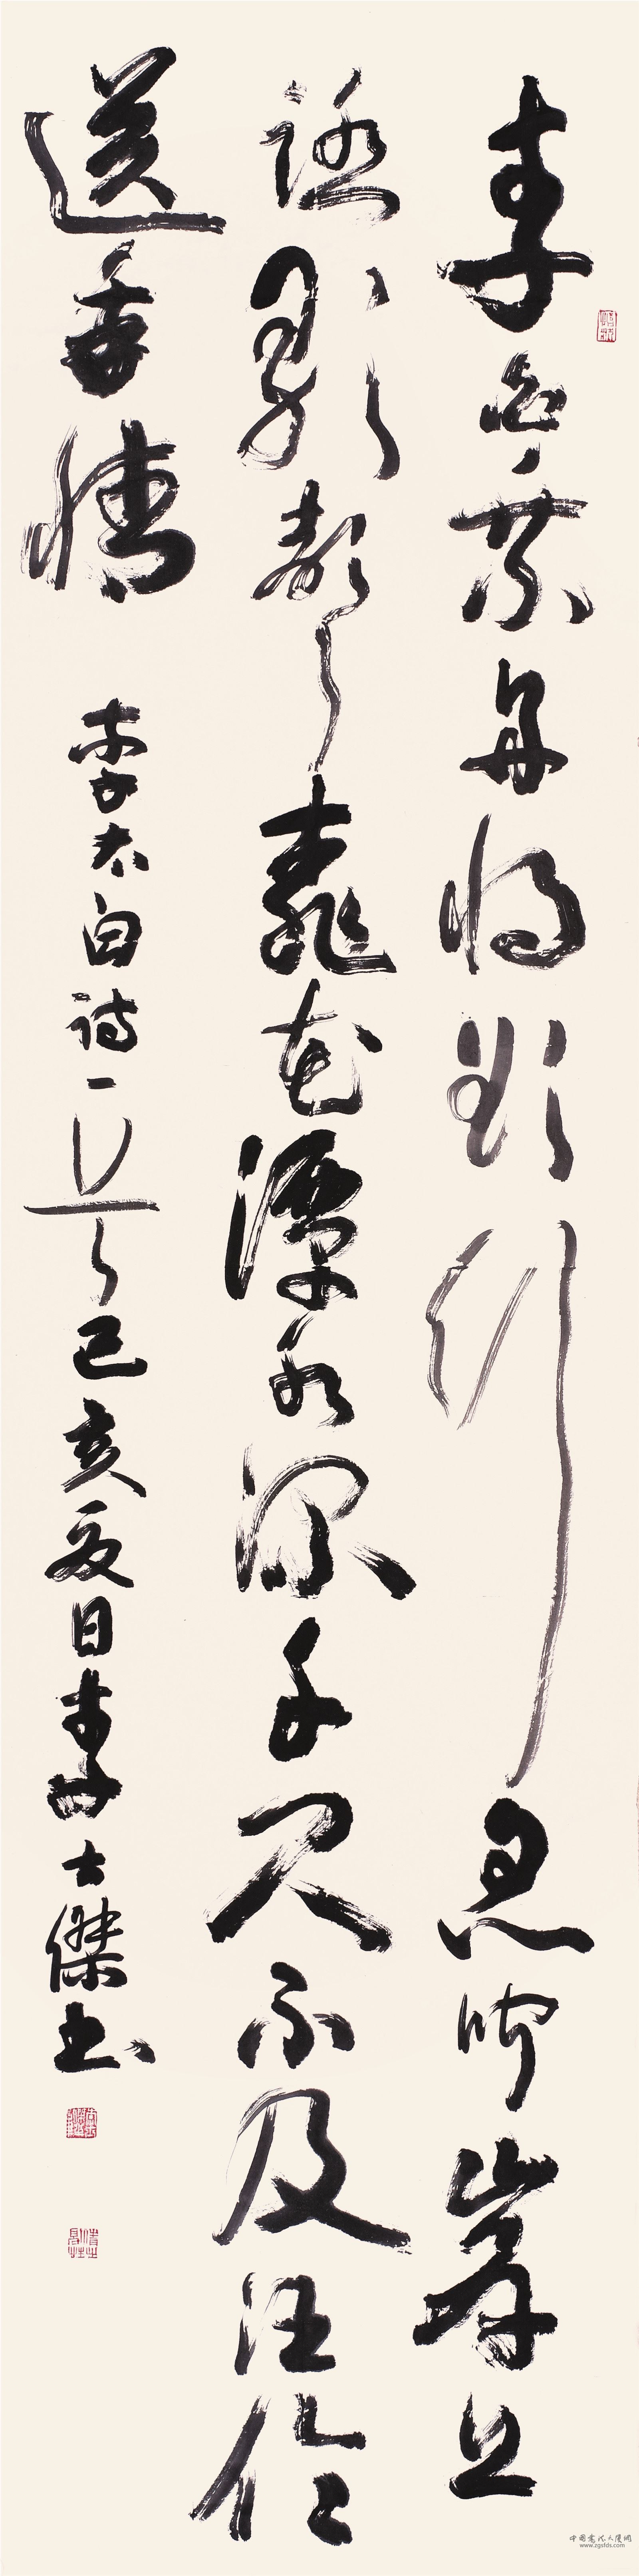 李白乘舟將欲行忽聞岸上
踏歌聲桃花潭水深千尺不及汪倫
送我情 李太白詩一首 己亥夏日李士傑書
www.zgsfds.com